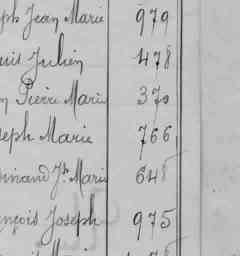 ph Jean Marie 979
uis Julien 478
n Pierre Marie 370
seph Marie 766
dinand Jh Marie 648
nçois Joseph 975